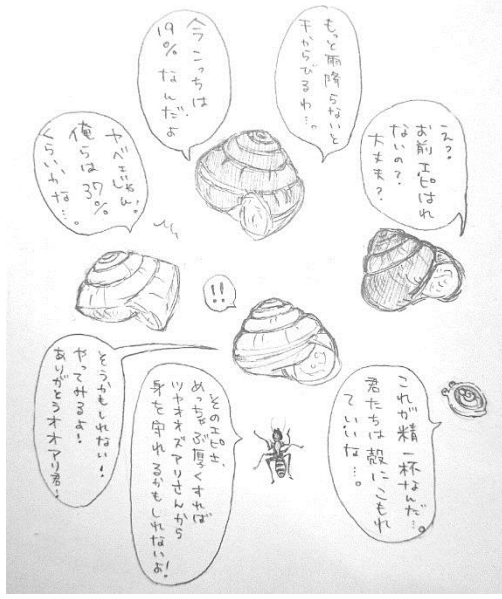 もっと雨降らないと
干からびるわ…。
今こっちは
19%なんだよ
え？
お前エピはれ
ないの？
大丈夫？
ヤベェじゃん！
俺らは37%
くらいかな…。
!!
これが精一杯なんだ…。
君たちは殻にこもれ
ていいな…。
そのエピさ、
めっちゃぶ厚くすれば
ツヤオオズアリさんから
身を守れるかもしれないよ！
そうかもしれない！
やってみるよ！
ありがとうオオアリ君！